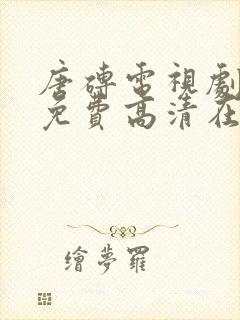 唐磚電視劇
免費高清在
繪夢羅